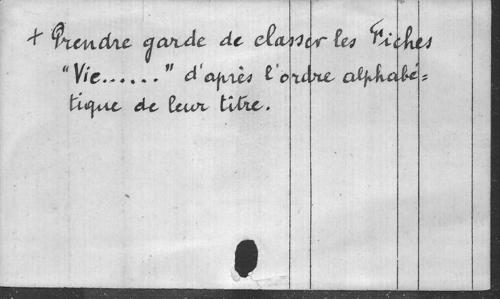 + Prendre garde de classer les Fiches
"Vie......" d'après l'ordre alphabé=
tique de leur titre.